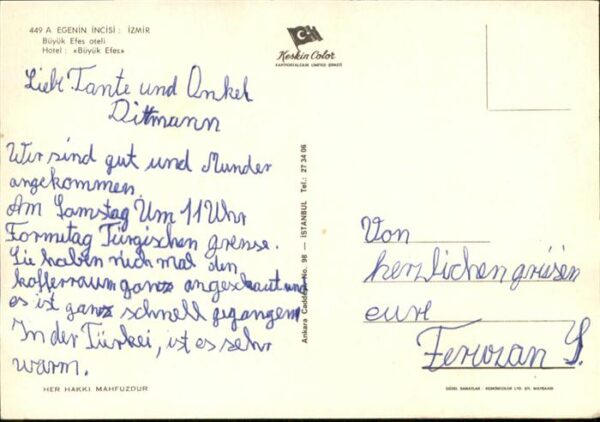 449 A EGENİN İNCİSİ : İZMİR
Büyük Efes oteli
Hotel : «Büyük Efes»
Keskin Color
KARTPOSTALCILIK LİMİTED ŞİRKETİ
Liebe Tante und Onkel
Dittmann
Wir sind gut und Munder
angekommen.
Am Samstag Um 11 Uhr
Formitag Türgischen grense.
Sie haben nich mal den
kofferraum ganz angeschaut und
es ist ganz schnell gegangen
In der Türkei, ist es sehr
warm.
HER HAKKI MAHFUZDUR
Ankara Caddesi No. 98 — İSTANBUL Tel.: 27 34 06
Von
herzlichen grüsen
eure
Feruzan S.
GÜZEL SANATLAR - KESKİNCOLOR LTD. ŞTİ. MATBAASI